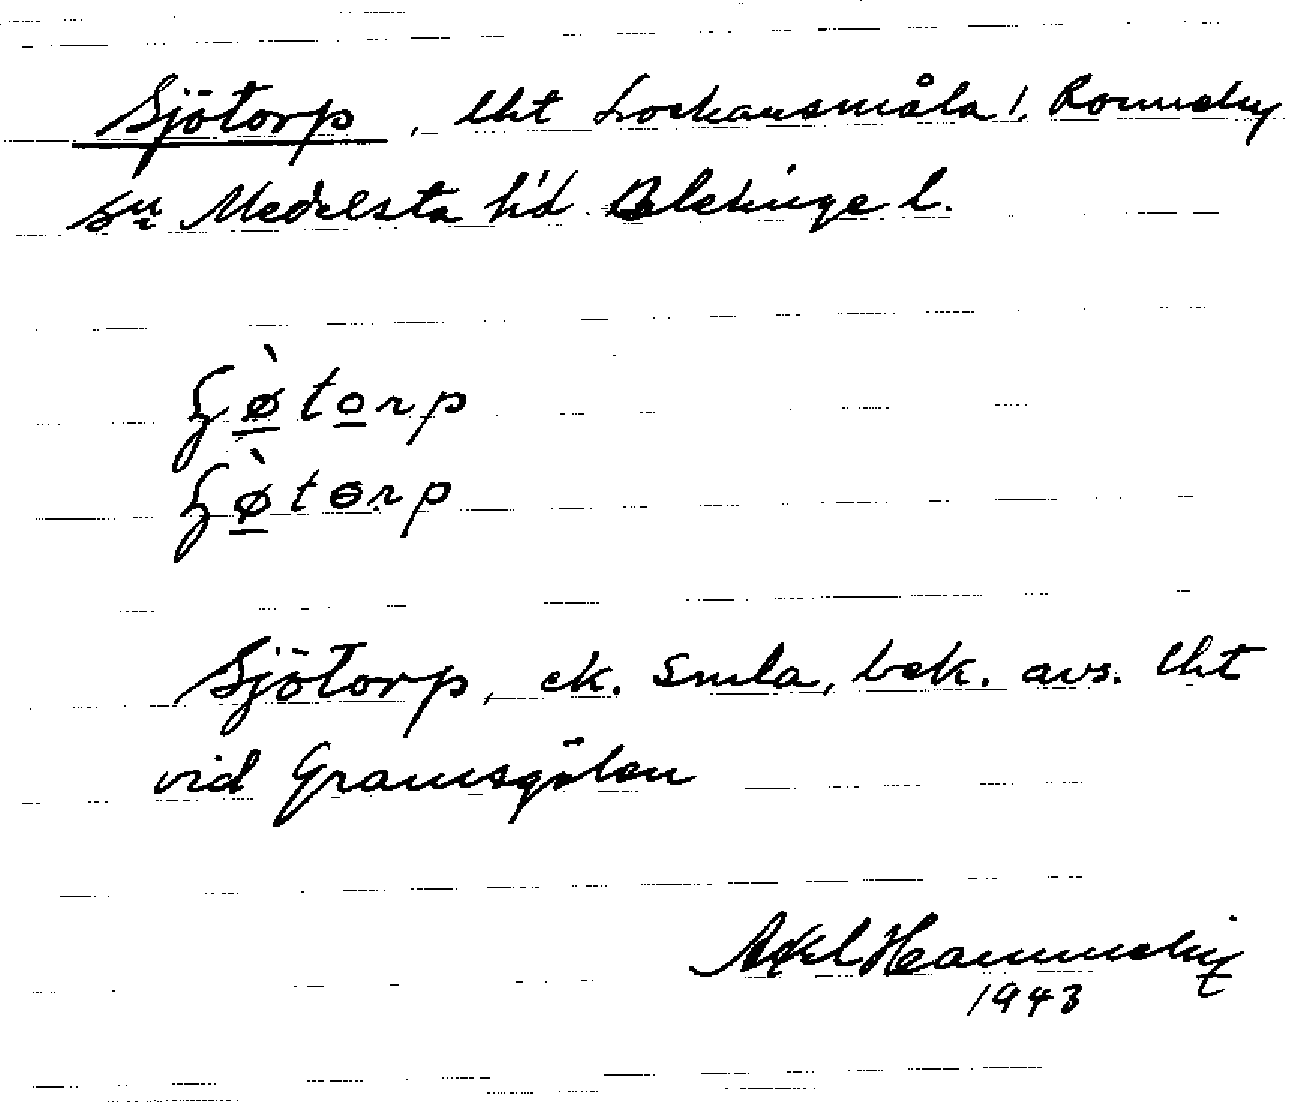 Sjötorp, lht Lockansmåla!, Ronneby
sn Medelsta h'd Blekinge l.
ʃø̀torp
ʃø̀tɵrp
Sjötorp, ek. Smla, bek. avs. lht
vid Gransgölen
Axel
1943